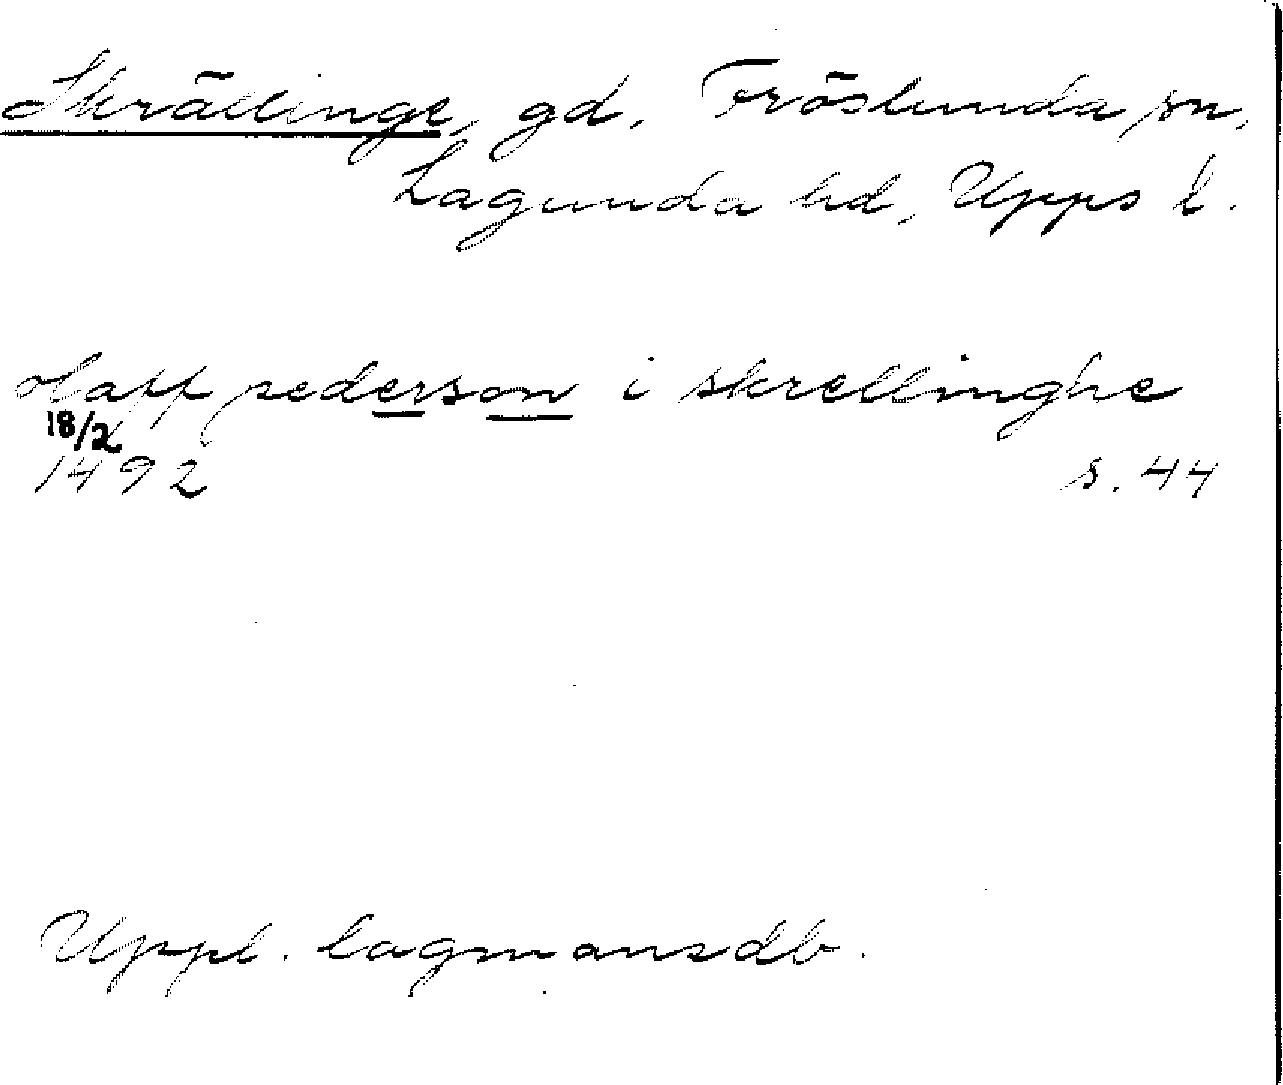 Skrällinge, gd, Fröslunda sn,
Lagunda hd, Upps l.
olaff pederson i skrellinghe
18/2
1492 s. 44
Uppl. lagmansdb.